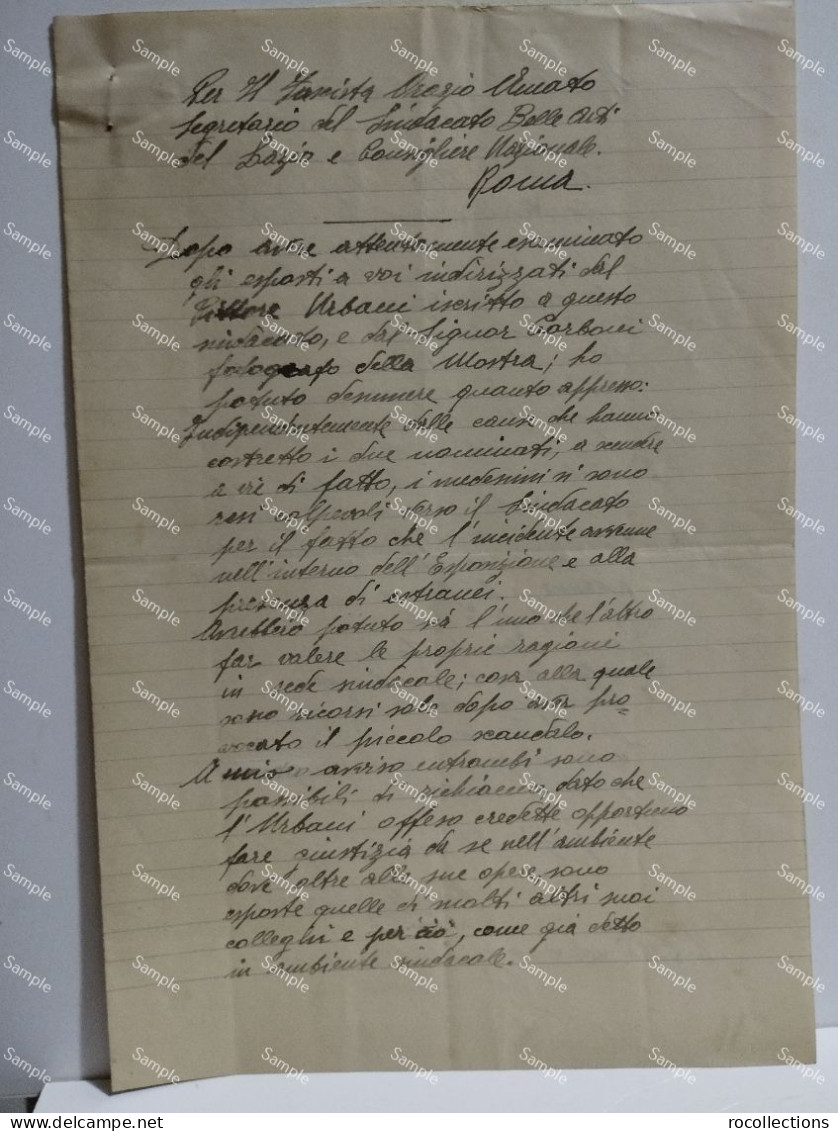 Per Il Fascista Orazio Amato
Segretario del Sindacato Belle Arti
del Lazio e Consigliere Nazionale.
Roma.
Dopo avere attentamente esaminato
gli esposti a voi indirizzati dal
Pittore Urbani iscritto a questo
sindacato, e dal Signor Carboni
fotografo della Mostra; ho
potuto desumere quanto appresso:
Indipendentemente dalle cause che hanno
costretto i due nominati, a scendere
a vie di fatto, i medesimi si sono
resi colpevoli verso il Sindacato
per il fatto che l'incidente avvenne
nell'interno dell'Esposizione e alla
presenza di estranei.
Avrebbero potuto sia l'uno che l'altro
far valere le proprie ragioni
in sede sindacale; cosa alla quale
sono ricorsi solo dopo aver pro=
vocato il piccolo scandalo.
A mio avviso entrambi sono
passibili di richiamo, dato che
l'Urbani offeso credette opportuno
fare giustizia da se nell'ambiente
dove oltre alle sue opere, sono
esposte quelle di molti altri suoi
colleghi e per ciò, come già detto
in ambiente sindacale.
rocollections